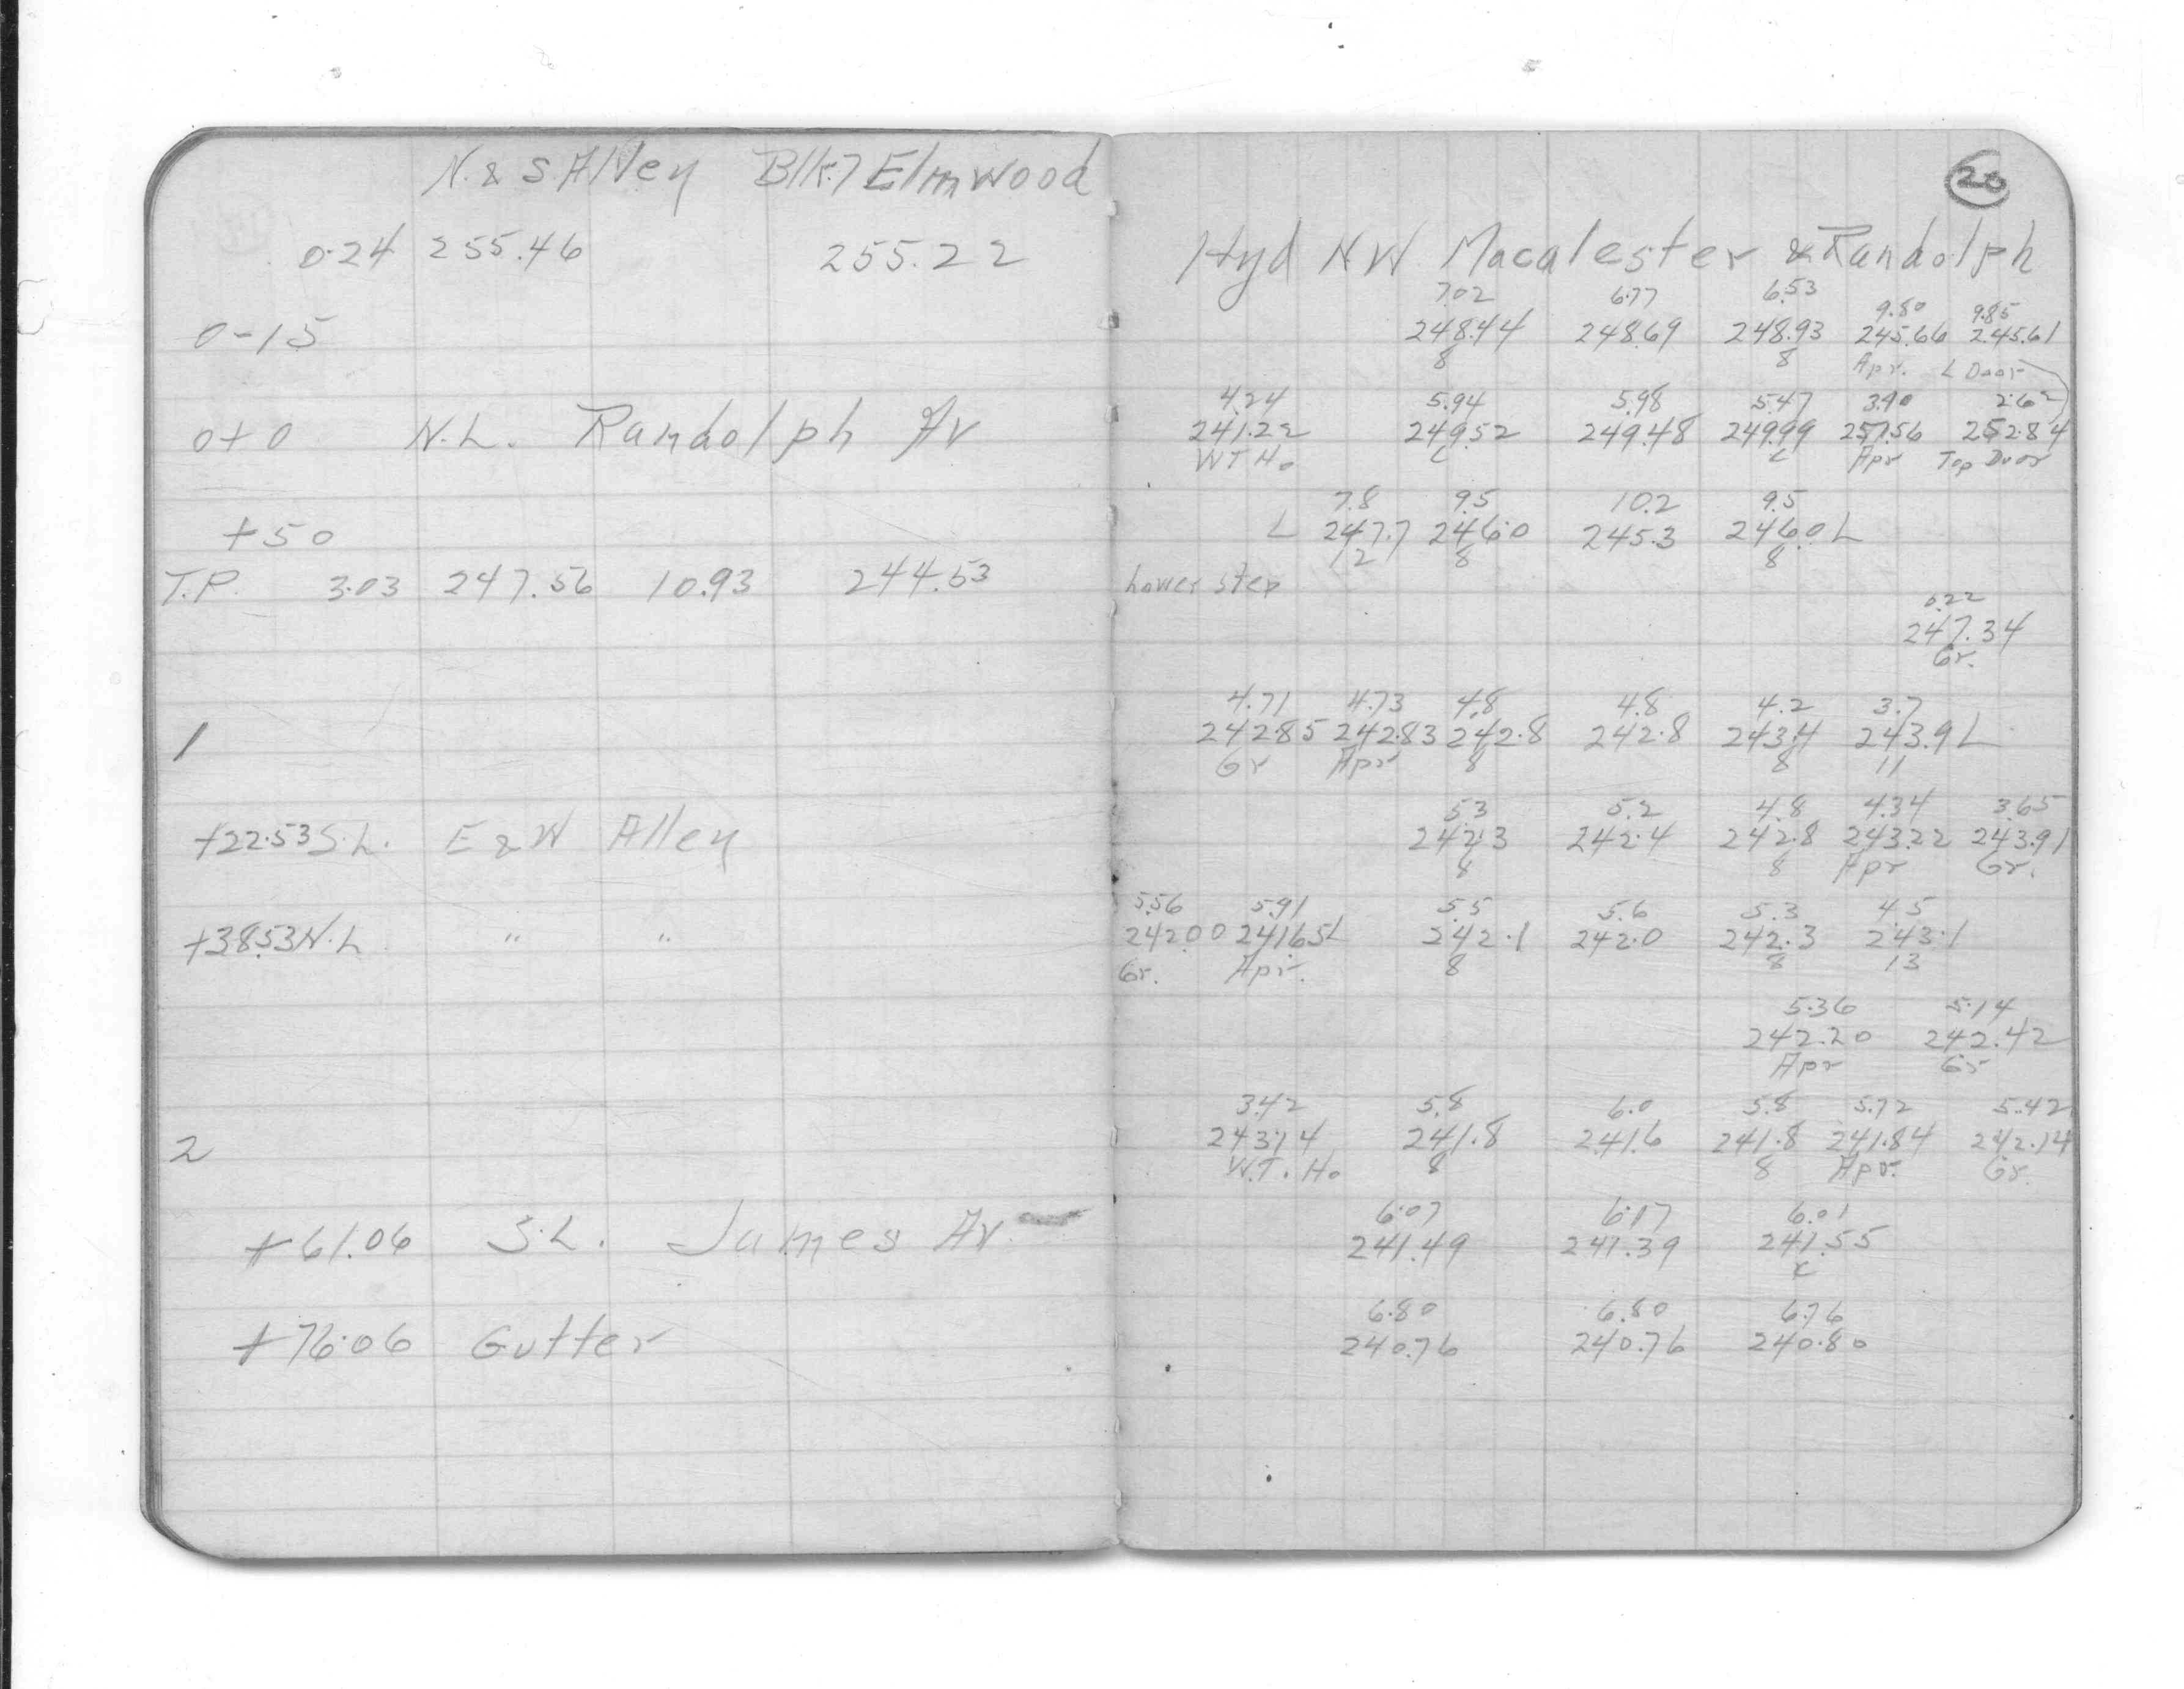 N. & S Alley Blk. 7 Elmwood
0.24 255.46 255.22
0-15
0+0 N.L. Randolph Av
+50
T.P. 3.03 247.56 10.93 244.53
1
+22.53 S.L. E & W Alley
+38.53 N.L. " "
2
+61.06 S.L. James Av.
+76.06 Gutter
20
Hyd NW Macalester & Randolph
7.02 6.77 6.53 9.80 9.85
248.44 248.69 248.93 245.66 245.61
8 8 Apr. L Door
4.24 5.94 5.98 5.47 3.90 2.62
241.22 249.52 249.48 249.99 251.56 252.84
W T Ho c c Apr Top Door
7.8 9.5 10.2 9.5
L 247.7 246.0 245.3 246.0 L
12 8 8
Lower step
0.22
247.34
Gr.
4.71 4.73 4.8 4.8 4.2 3.7
242.85 242.83 242.8 242.8 243.4 243.9 L
Gr Apr 8 8 11
5.3 5.2 4.8 4.34 3.65
242.3 242.4 242.8 243.22 243.91
8 8 Apr Gr.
5.56 5.91 5.5 5.6 5.3 4.5
242.00 241.65 L 242.1 242.0 242.3 243.1
Gr. Apr. 8 8 13
5.36 5.14
242.20 242.42
Apr Gr
3.42 5.8 6.0 5.8 5.72 5.42
243.14 241.8 241.6 241.8 241.84 242.14
W.T. Ho 8 8 Apr. Gr.
6.07 6.17 6.01
241.49 241.39 241.55
c
6.80 6.80 6.76
240.76 240.76 240.80